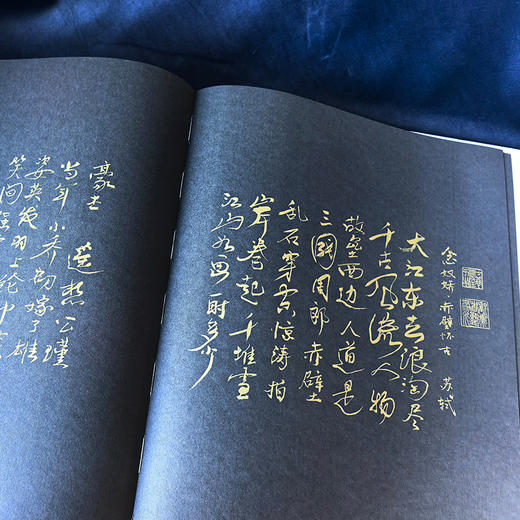 念奴娇 赤壁怀古 苏轼
大江东去浪淘尽
千古风流人物
故垒西边人道是
三国周郎赤壁
乱石穿空惊涛拍
岸卷起千堆雪
江山如画一时多少
豪杰
遥想公瑾
当年小乔初嫁了雄
姿英发羽扇纶巾
笑间